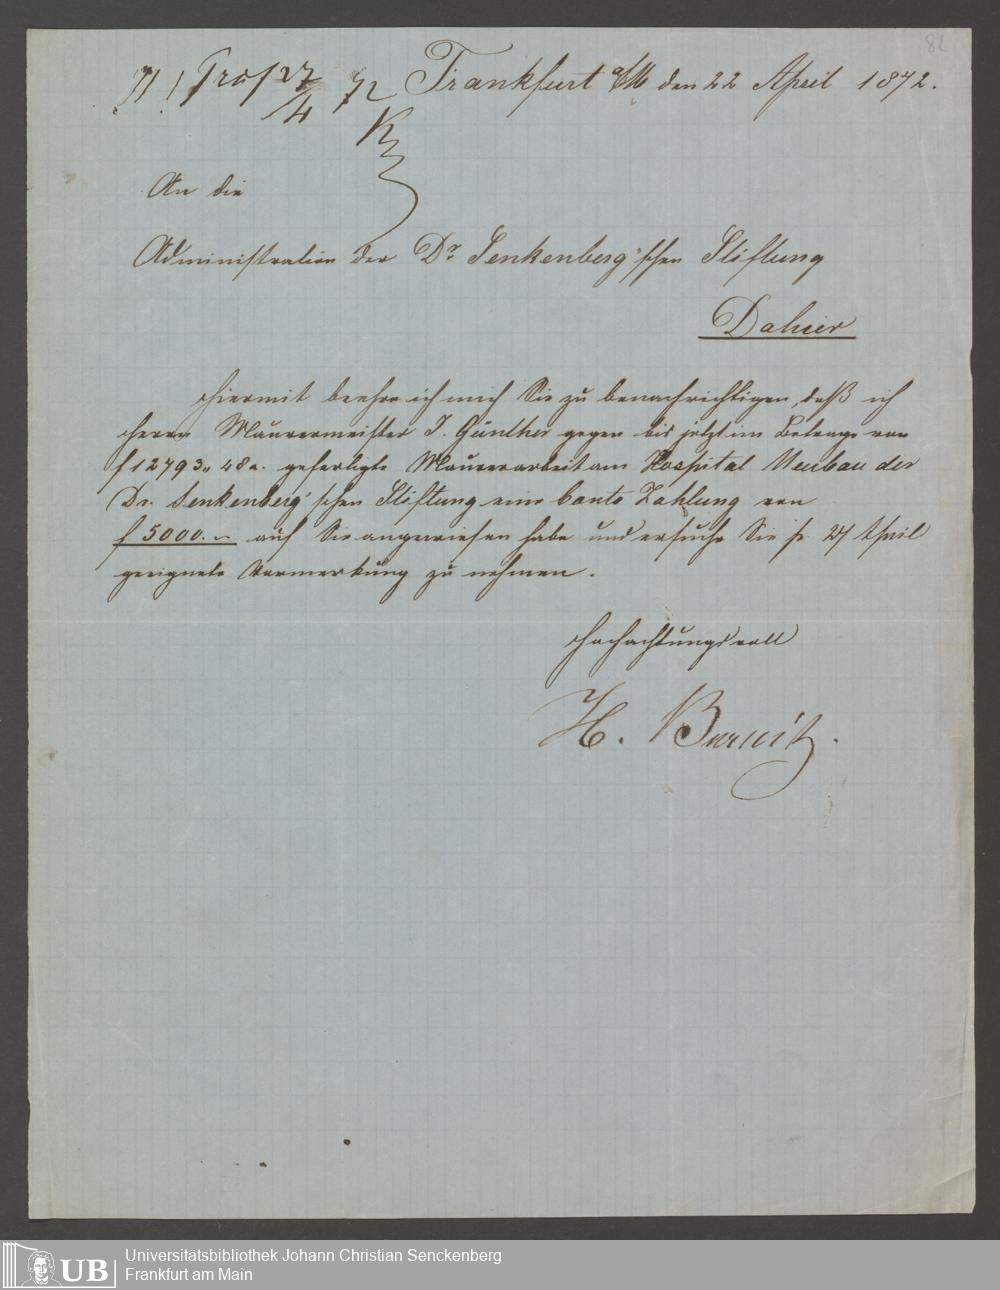 82
Frankfurt a/M den 22 April 1872.
An die
Administration der Dr. Senkenberg'schen Stiftung
Dahier
Hiermit beehre ich mich Sie zu benachrichtigen, daß ich
Herrn Maurermeister J. Günther gegen bis jetzt im Betrage von
f 12793 „ 48 x. gefertigte Maurerarbeit am Hospital Neubau der
Dr. Senkenberg'schen Stiftung eine Conto Zahlung von
f 5000. – auf Sie angewiesen habe und ersuche Sie p. 27 April
geeignete Vormerkung zu nehmen.
Hochachtungsvoll
H. Burnitz.
UB
Universitätsbibliothek Johann Christian Senckenberg
Frankfurt am Main